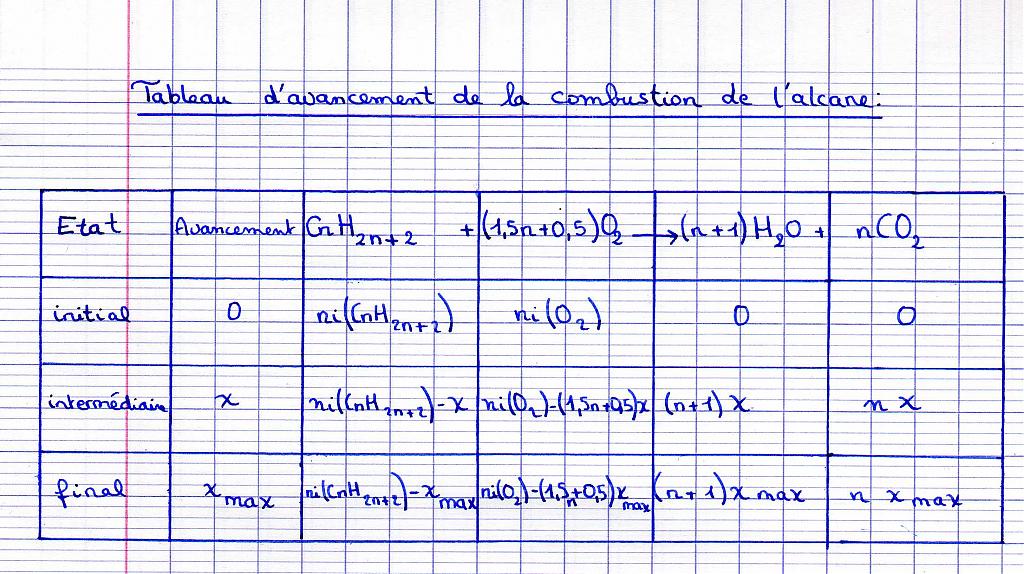 Tableau d'avancement de la combustion de l'alcane:
Etat Avancement CnH2n+2 + (1,5n+0,5)O2 → (n+1)H2O + nCO2
initial 0 ni(CnH2n+2) ni(O2) 0 0
intermédiaire x ni(CnH2n+2)-x ni(O2)-(1,5n+0,5)x (n+1)x nx
final xmax ni(CnH2n+2)-xmax ni(O2)-(1,5n+0,5)xmax (n+1)xmax n xmax